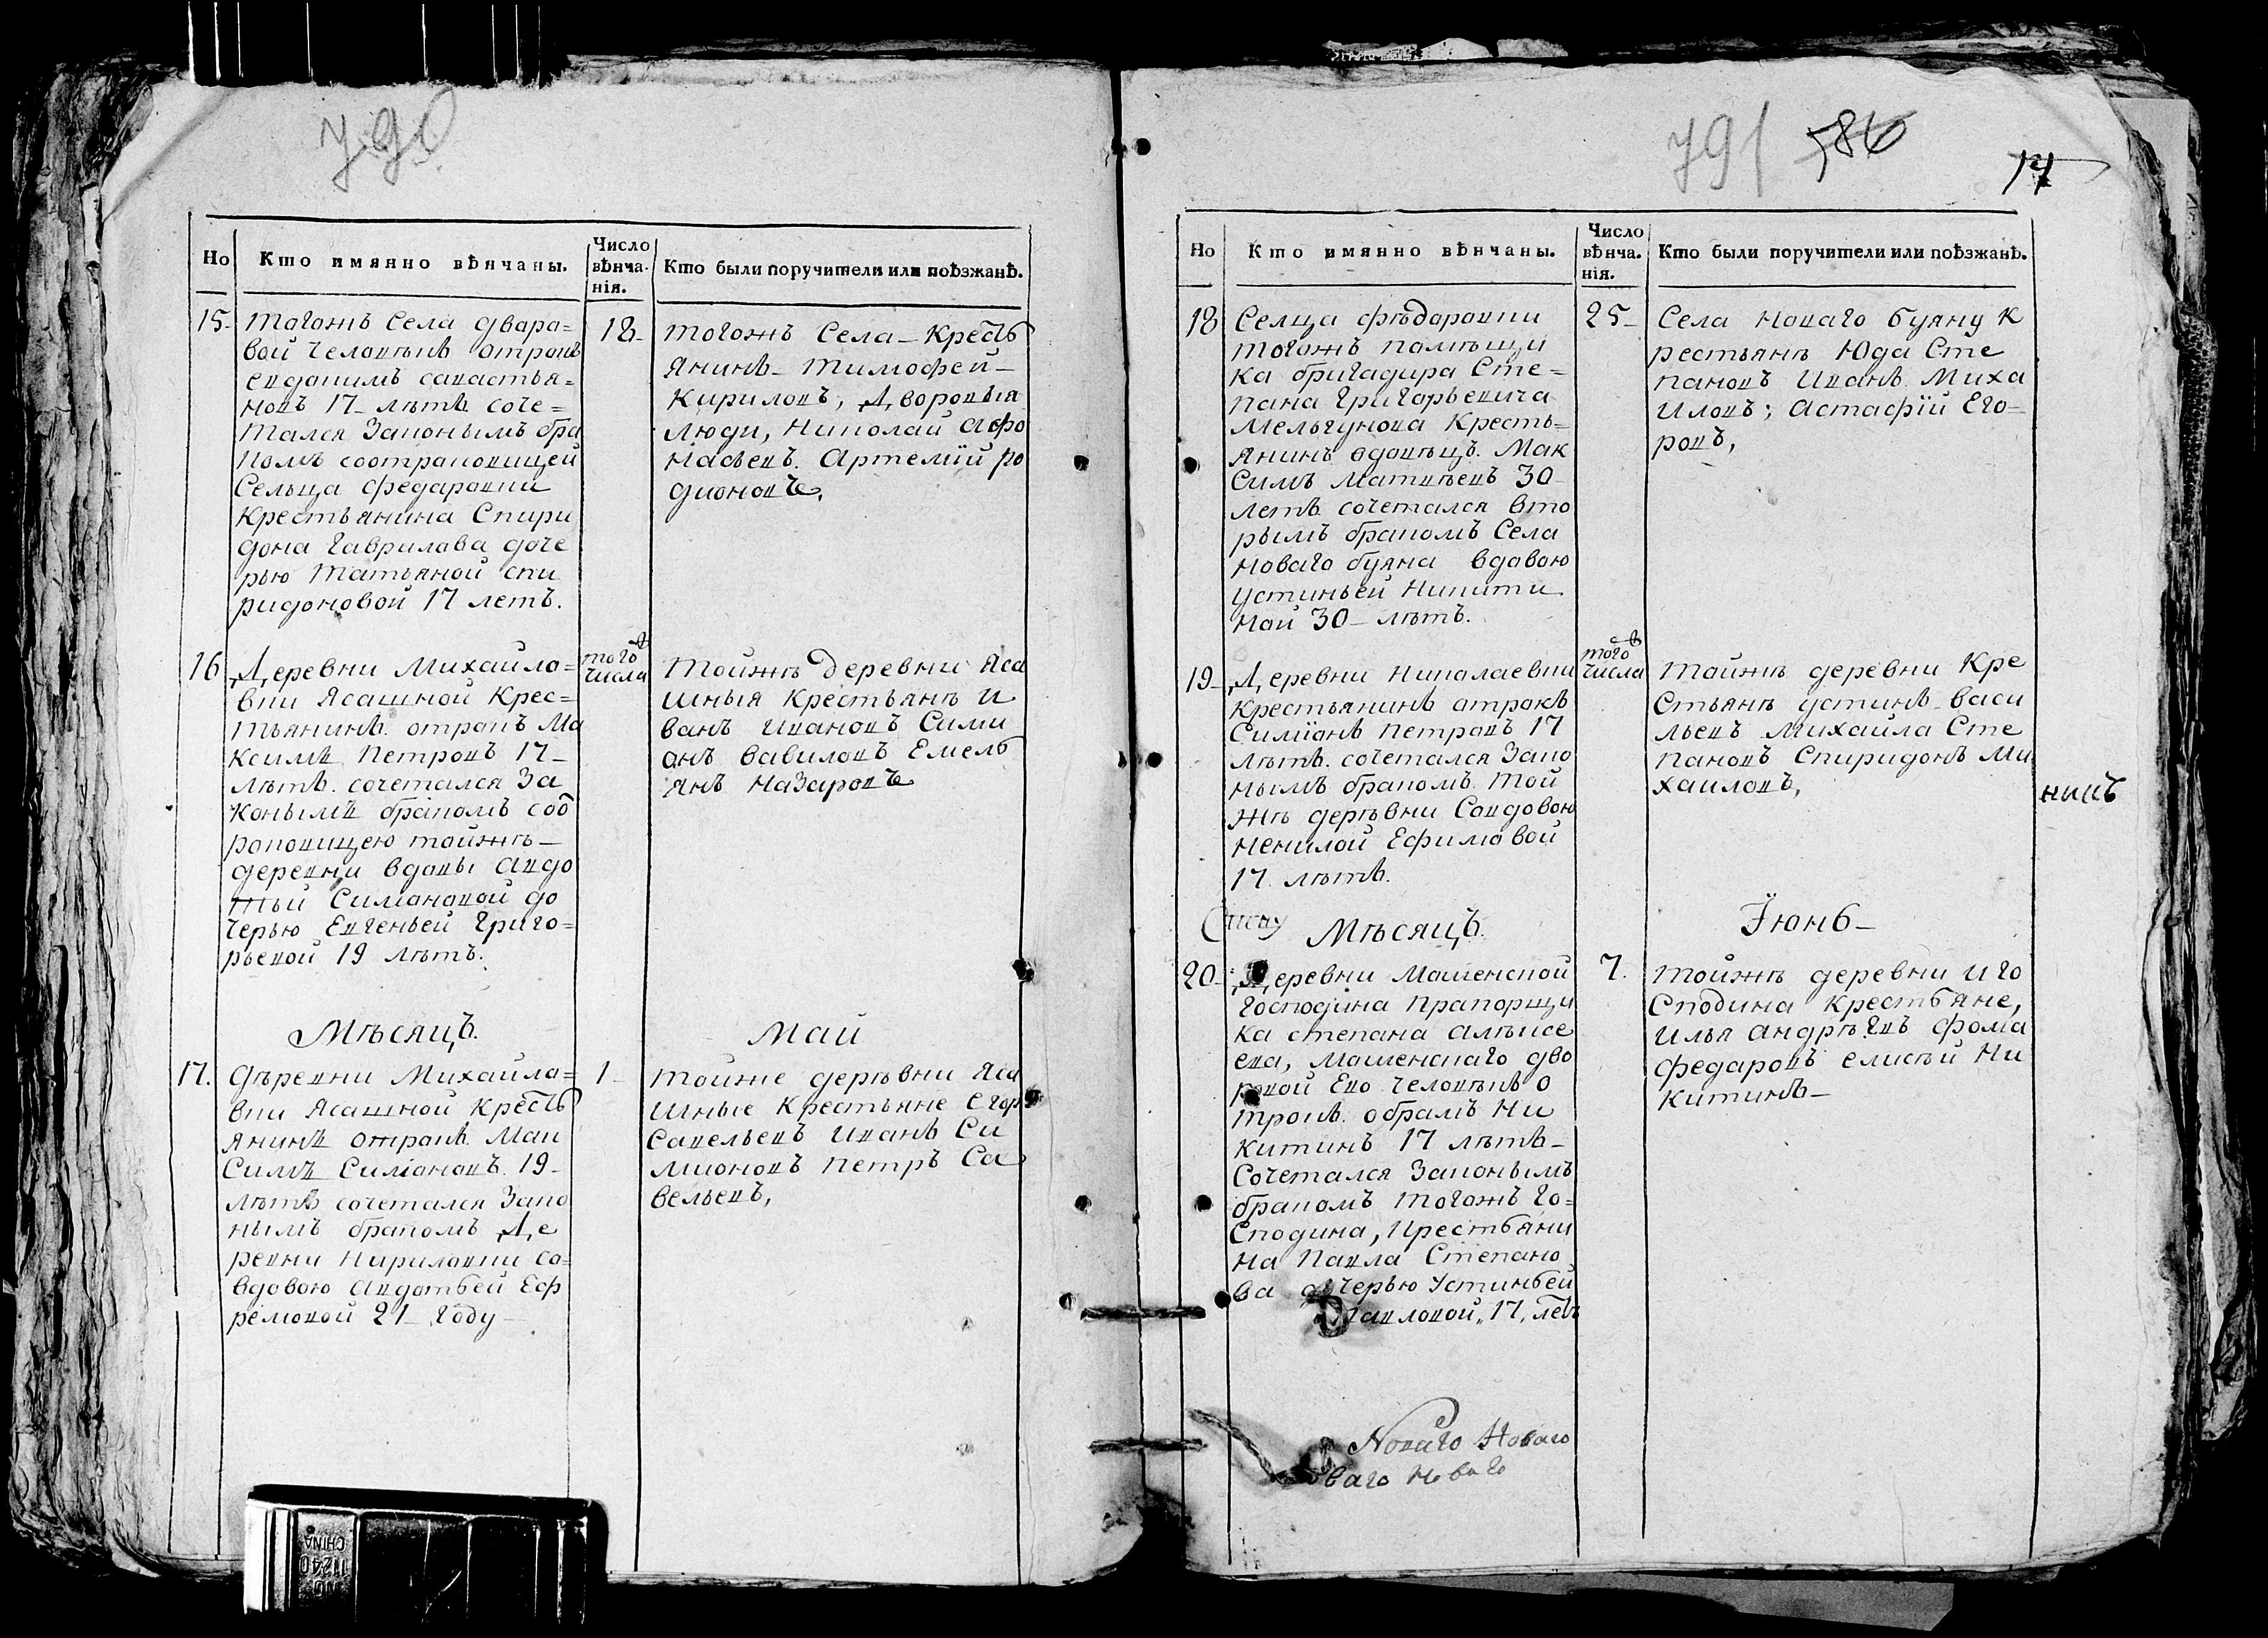 790
Но
Кто имянно вѣнчаны.
Число вѣнча-нія.
Кто были поручители или поѣзжанѣ.
15-
тогожъ Села двара=
вой человѣкъ отрокъ
евдокимъ савастья=
новъ 17 лѣтъ соче=
тался Законымъ бра
комъ соотраковицей
Сельца Федаровки
Крестьянина Спири
дона Гаврилава доче
рью Татьяной спи
ридоновой 17 летъ.
18-
тогожъ Села Кресть
янинъ Тимофей
Кириловъ, Дворовыя
люди, Николай Афо
насьевъ. Артемїй ро
дионовъ,
16
Деревни Михайло=
вки Ясашной Крес=
тьянинъ отрокъ Ма
ксимъ Петровъ 17
лѣтъ сочетался За
конымъ бракомъ соо
роковицею тойжѣ
деревни вдовы Авдо
тьи Симановой до
черью Евгеньей Григо=
рьевой 19 лѣтъ.
того
числа
Тойжѣ деревни Яса
шныя Крестьянѣ И
ванъ Ивановъ Сими
онъ Вавиловъ Емель
янъ Назаровъ
Мѣсяцъ
Май
17.
Дѣревни Михайла=
вки Ясашной Кресть
янинъ отрокъ Мак
Симъ Симїоновъ 19
лѣтъ сочетался Зако
нымъ бракомъ Де
ревни Кириловки со=
вдовою Авдотьей Еф
ремовой 21 году
1
Тойже дерѣвни Яса
шные Крестьяне Егор
Савельевъ Иванъ Си
мионовъ Петръ Са
вельевъ,
791 786
14
Но
Кто имянно вѣнчаны.
Число вѣнча.нія.
Кто были поручители или поѣзжанѣ.
18
Селца Фѣдаровки
тогожъ памѣщи
ка бригадира Сте=
пана Григорьевича
Мельгунова Кресть=
янинъ вдовѣцъ Мак
Симъ Матвѣевъ 30
летъ сочетался вто
рымъ бракомъ Села
Новаго буяна вдовою
Устиньей Никити
най 30 лѣтъ.
25
Села Новаго буяну К
рестьянѣ Юда Сте
пановъ Иванъ Миха
иловъ; Астафїй Его=
ровъ,
19
Деревни Николаевки
Крестьянинъ атрокъ
Симїонъ Петровъ 17
лѣтъ сочетался Зако
нымъ бракомъ той
жѣ дерѣвни Совдовою
Ненилой Ефимовой
17 лѣтъ.
того
числа
Тойжѣ деревни Кре
Стьянѣ Устинъ Васи
льевъ Михайла Сте
пановъ Спиридонъ Ми
хаиловъ,
Мѣсяцъ
Їюнь
20
Деревни Маменской
Господина Прапорщи
ка степана Алѣксе
ева, Маменскаго дво
ровой Ево человѣкъ о
трокъ обрамъ Ни
китинъ 17 лѣтъ
Сочетался Законымъ
бракомъ тогожъ Го=
Сподина, Крестьяни
на Павла Степано
ва дочерью Устиньей
Павловой, 17, летъ
7.
Тойжѣ деревни и Го
Сподина крестьяне,
Илья Андрѣевъ Фома
Федаровъ елисѣй Ни
китинъ
Новаго Новаго
ваго Новаго